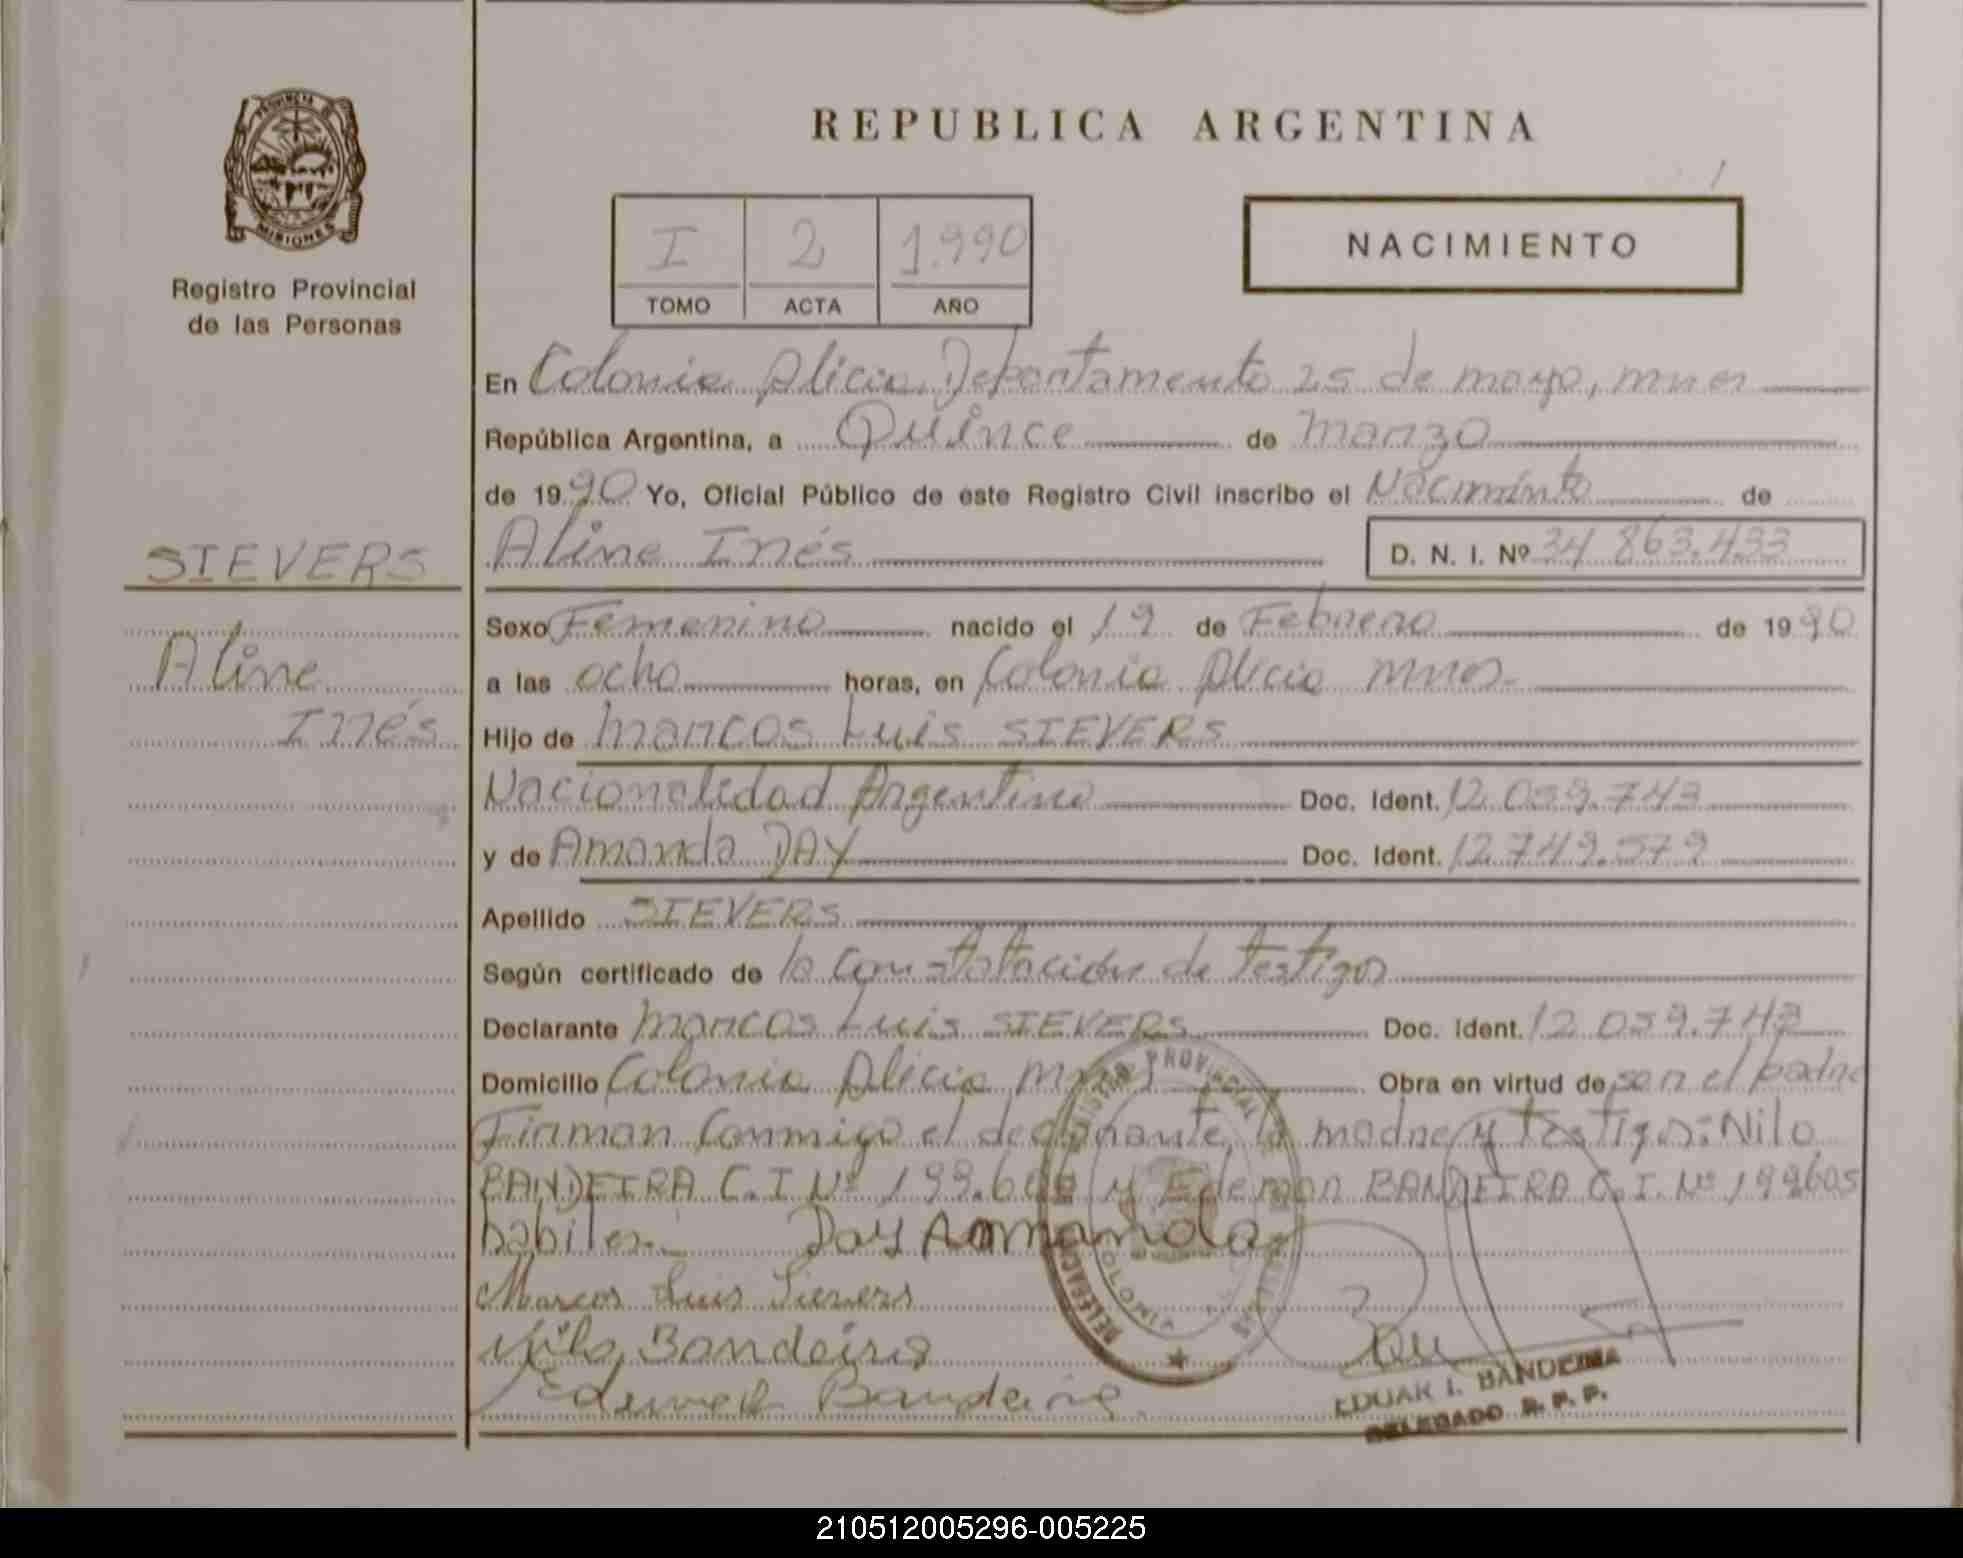 REPUBLICA ARGENTINA
PROVINCIA DE
MISIONES
Registro Provincial
de las Personas
I 2 1.990
TOMO ACTA AÑO
NACIMIENTO
En Colonia Alicia Departamento 25 de mayo, mnes
República Argentina, a Quince de marzo
de 1990 Yo, Oficial Público de este Registro Civil inscribo el Nacimiento de
SIEVERS
Aline Inés D. N. I. Nº 34 863.433
Aline
Inés
Sexo Femenino nacido el 19 de Febrero de 1990
a las ocho horas, en Colonia Alicia mnes.
Hijo de marcos Luis SIEVERS
Nacionalidad Argentina Doc. Ident. 12.039.743
y de Amanda DAY Doc. Ident. 12.749.579
Apellido SIEVERS
Según certificado de la constatación de testigos
Declarante marcos Luis SIEVERS Doc. Ident. 12 039.743
Domicilio Colonia Alicia mnes Obra en virtud de ser el padre
Firman conmigo el declarante, la madre y testigos: Nilo
BANDEIRA C.I Nº 199. y BANDEIRA C.I. Nº 199605
habiles. Day Amanda
Marcos Luis Sievers
Nilo Bandeira
Bandeira
REGISTRO PROVINCIAL
DELEGACION
I. BANDEIRA
DELEGADO R. P. P.
210512005296-005225